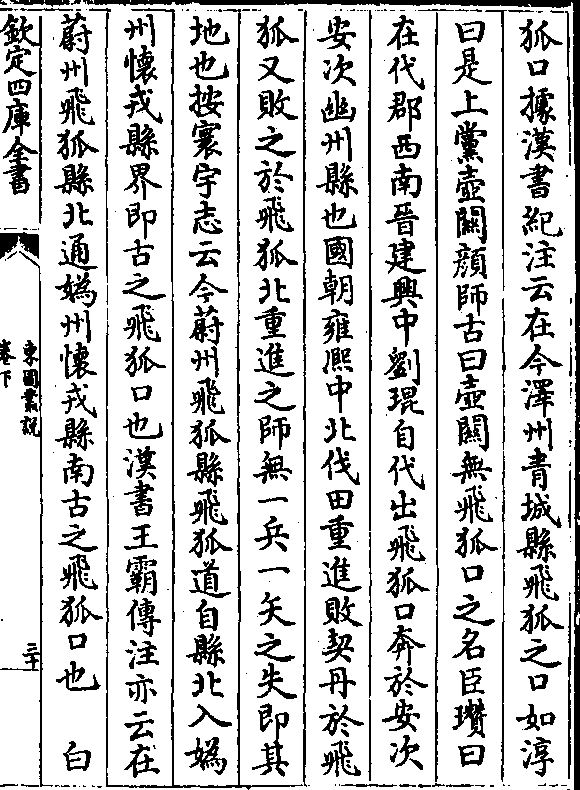 狐口據漢書紀注云在今澤州青城縣飛狐之口如淳
曰是上黨壺關顔師古曰壺關無飛狐口之名臣瓚曰
在代郡西南晉建興中劉琨自代出飛狐口奔於安次
安次幽州縣也國朝雍熙中北伐田重進敗契丹於飛
狐又敗之於飛狐北重進之師無一兵一矢之失即其
地也按寰宇志云今蔚州飛狐縣飛狐道自縣北入媯
州懷戎縣界即古之飛狐口也漢書王霸傳注亦云在
蔚州飛狐縣北通媯州懷戎縣南古之飛狐口也　白
欽定四庫全書
卷下
三十